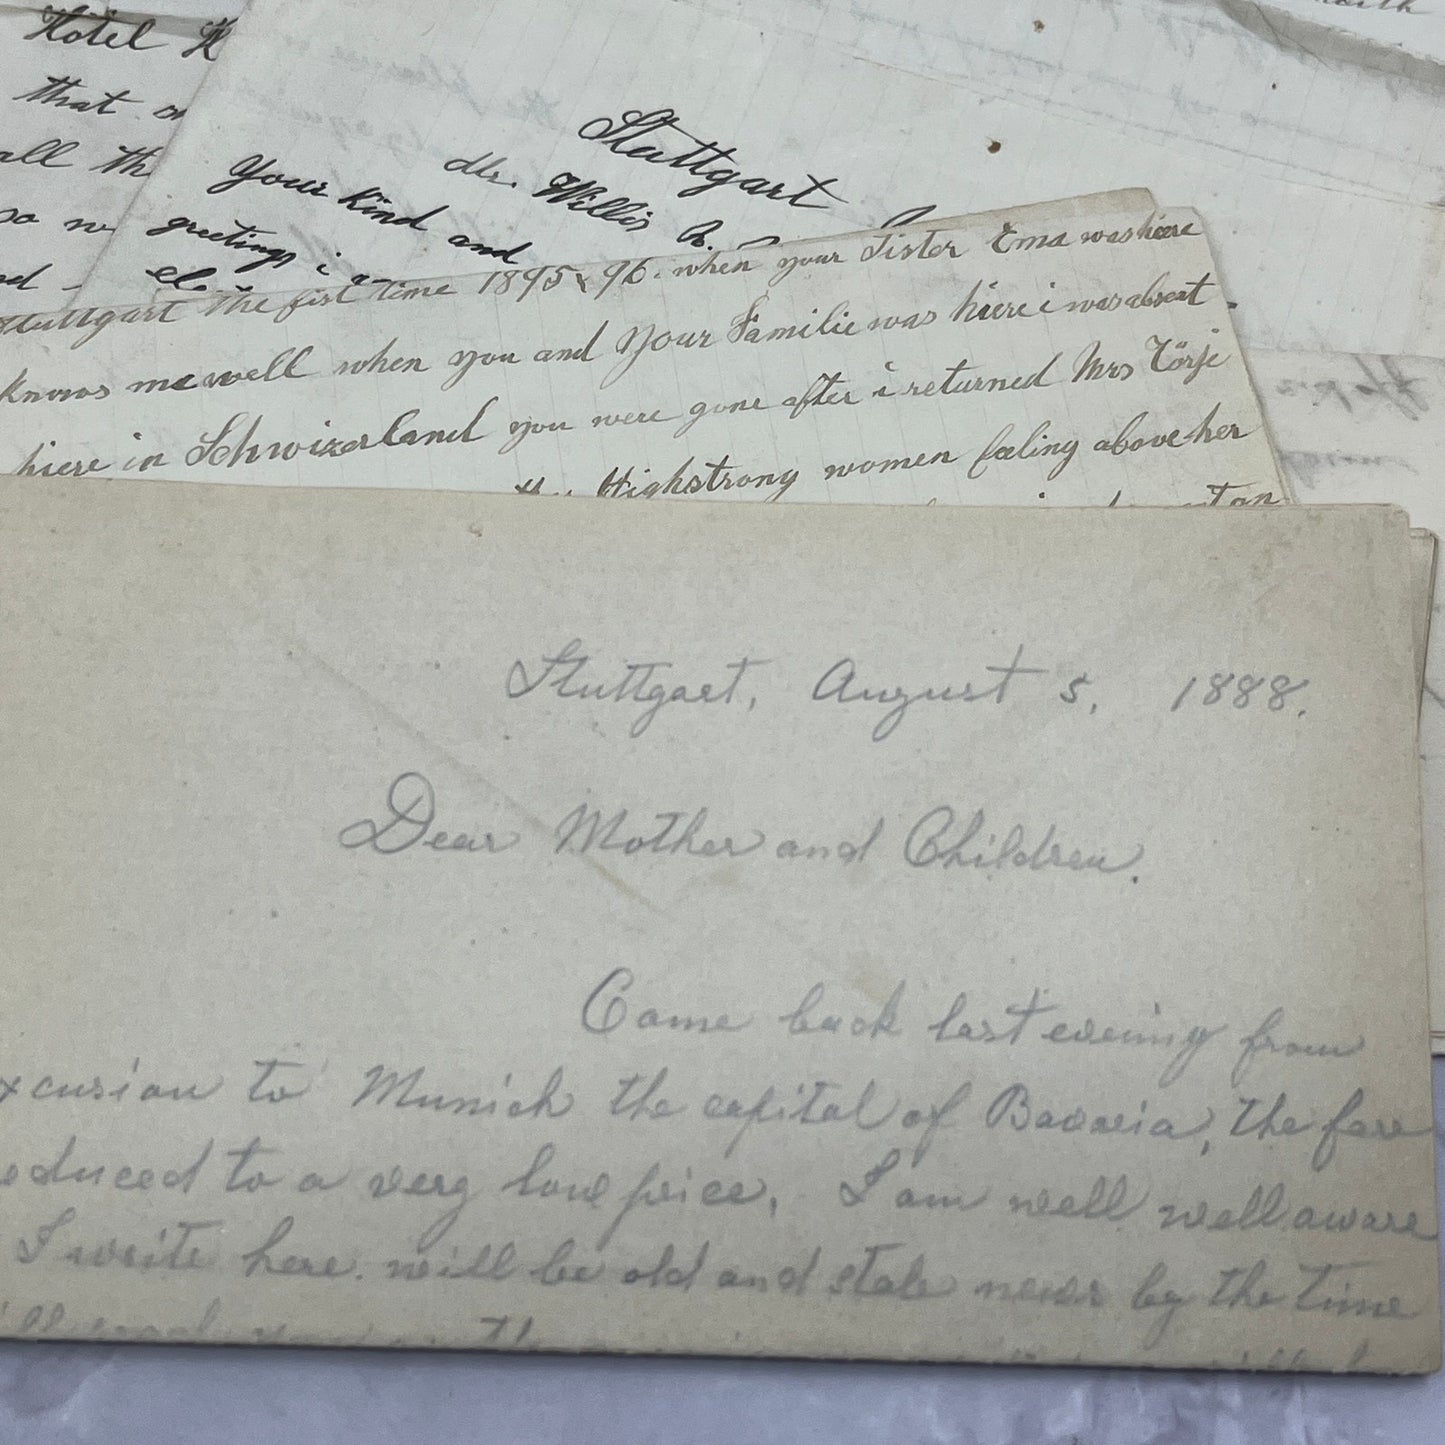 Hotel
that
all th
so w
Stuttgart
Mr. Willis R.
Your kind and
greetings i
Stuttgart the first time 1895 & 96. when your Sister Ema was hiere
knows me well when you and Your Familie was hiere i was absent
hiere in Schwizerland you were gone after i returned Mrs Törje
Highstrong women feeling above her
Stuttgart, August 5, 1888.
Dear Mother and Children.
Came back last evening from
xcursion to Munich the capital of Bavaria, the fare
educed to a very low price, I am well well aware
I write here will be old and stale news by the time